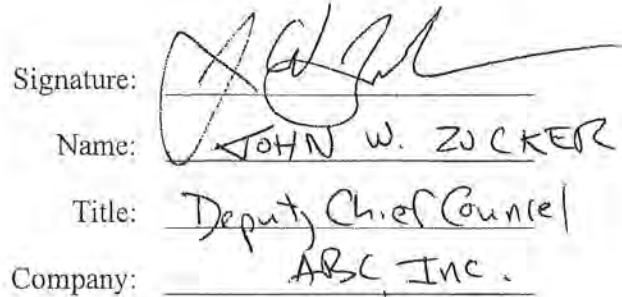 Signature:
Name: JOHN W. ZUCKER
Title: Deputy Chief Counsel
Company: ABC, Inc.